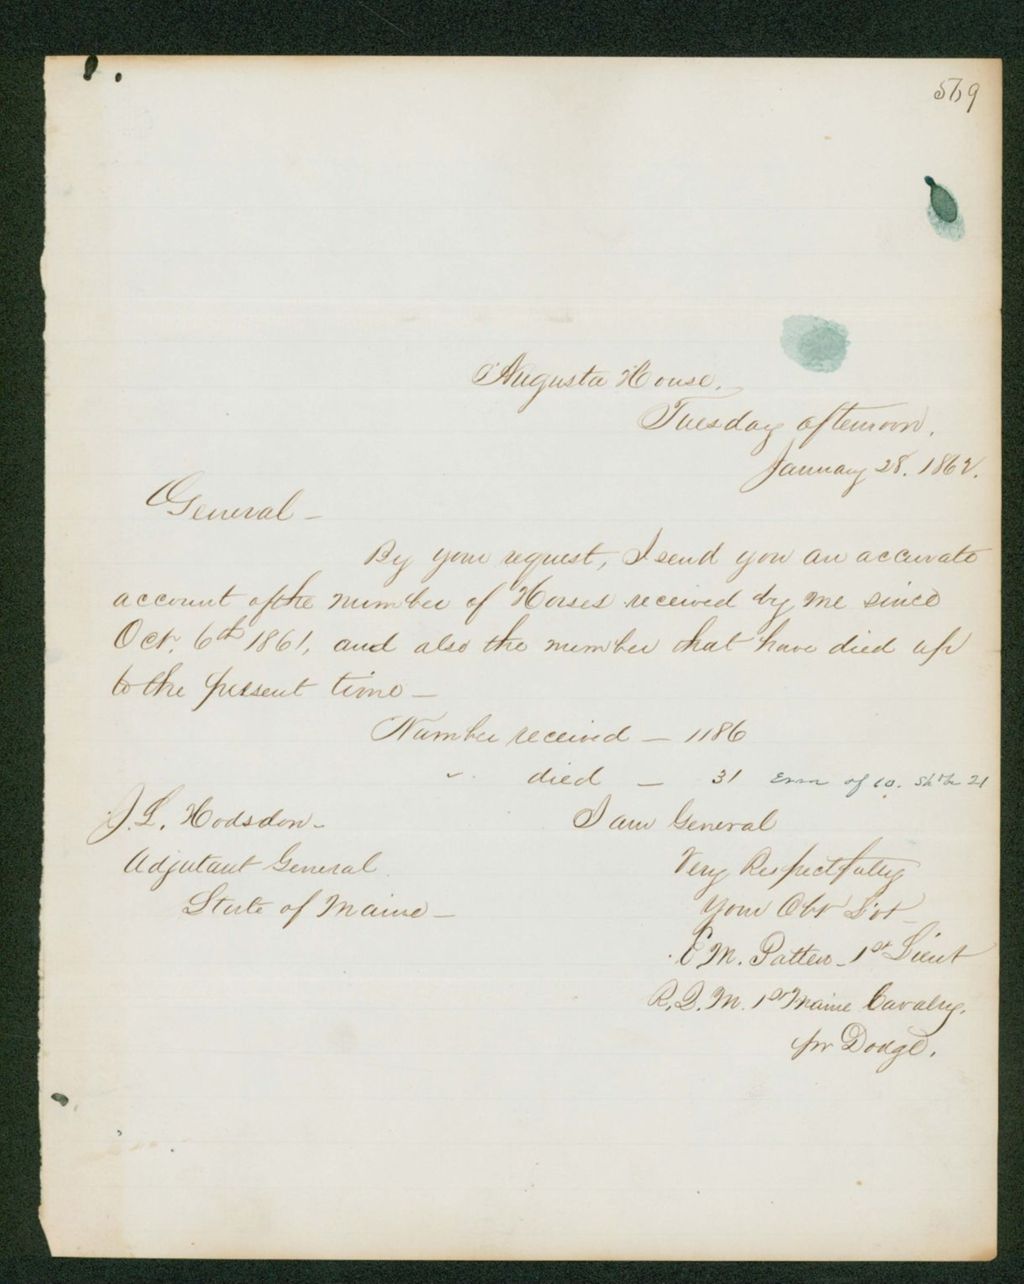 569
Augusta House.
Tuesday afternoon.
January 28. 1862.
General –
By your request, I send you an accurate
account of the number of Horses received by me since
Oct. 6th 1861, and also the number that have died up
to the present time –
Number received – 1186
" died – 31 Error of 10. Sh'd be 21
J. L. Hodsdon –
Adjutant General
State of Maine –
I am General
Very Respectfully
Your Obt Svt
C M. Patten – 1st Lieut
R. Q. M. 1st Maine Cavalry.
pr Dodge.